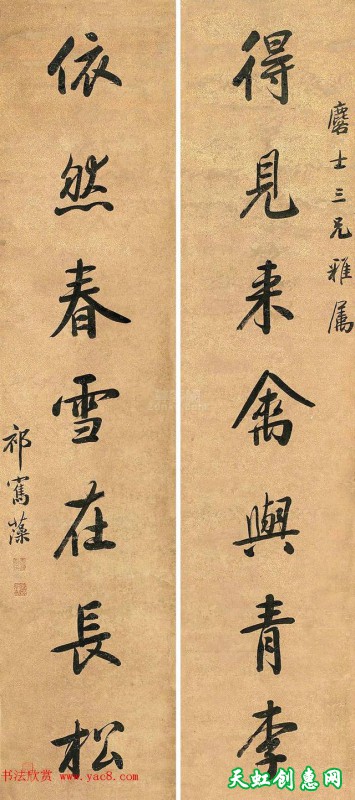 麐士三兄雅属
得見来禽與青李
依然春雪在長松
祁寯藻
书法欣赏
www.yac8.com
天虹创惠网